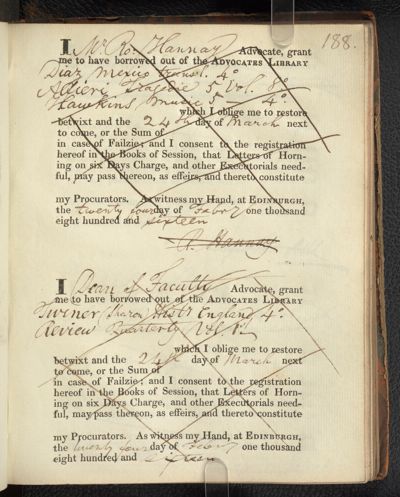 188.
I Mr. Ro. Hannay Advocate, grant
me to have borrowed out of the ADVOCATES LIBRARY
Diaz Mexico transl. 4o.
Alfieri Tragedie 5 Vol. 8o
Hawkins, Music 5 — 4o.
which I oblige me to restore
betwixt and the 24th day of March next
to come, or the Sum of
in case of Failzie; and I consent to the registration
hereof in the Books of Session, that Letters of Horn-
ing on six Days Charge, and other Executorials need-
ful, may pass thereon, as effeirs, and thereto constitute
my Procurators. As witness my Hand, at EDINBURGH,
the twenty four day of Febry one thousand
eight hundred and sixteen
R. Hannay
I Dean of Faculty Advocate, grant
me to have borrowed out of the ADVOCATES LIBRARY
Turner (Sharon) Histy England 4o.
Review Quarterly Vol
which I oblige me to restore
betwixt and the 24 day of March next
to come, or the Sum of
in case of Failzie; and I consent to the registration
hereof in the Books of Session, that Letters of Horn-
ing on six Days Charge, and other Executorials need-
ful, may pass thereon, as effeirs, and thereto constitute
my Procurators. As witness my Hand, at EDINBURGH,
the twenty four day of Febry one thousand
eight hundred and sixteen